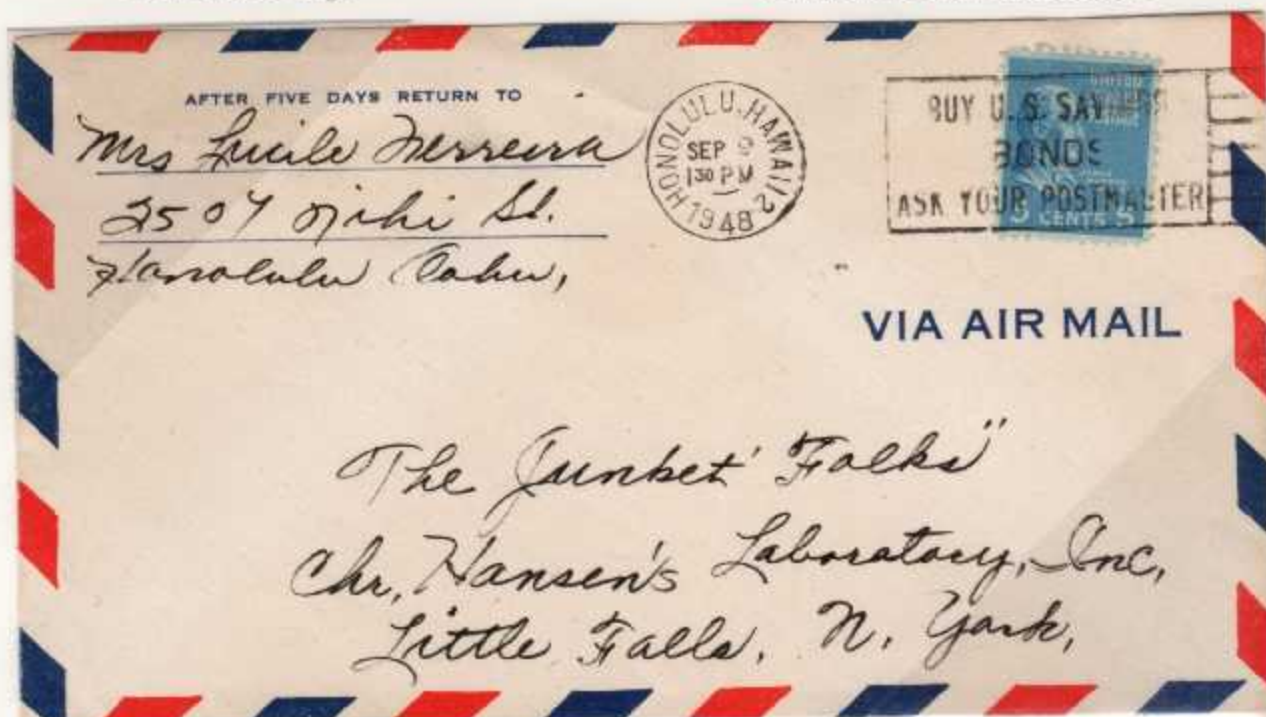 AFTER FIVE DAYS RETURN TO
Mrs Lucile Ferreira
Nihi St.
Honolulu Oahu,
HONOLULU, HAWAII 2
SEP 9
130 PM
1948
BUY U. S. SAVINGS
BONDS
ASK YOUR POSTMASTER
UNITED
5 CENTS 5
VIA AIR MAIL
The Junket' Folks"
Chr, Hansen's Laboratory, Inc,
Little Falls, N. York,